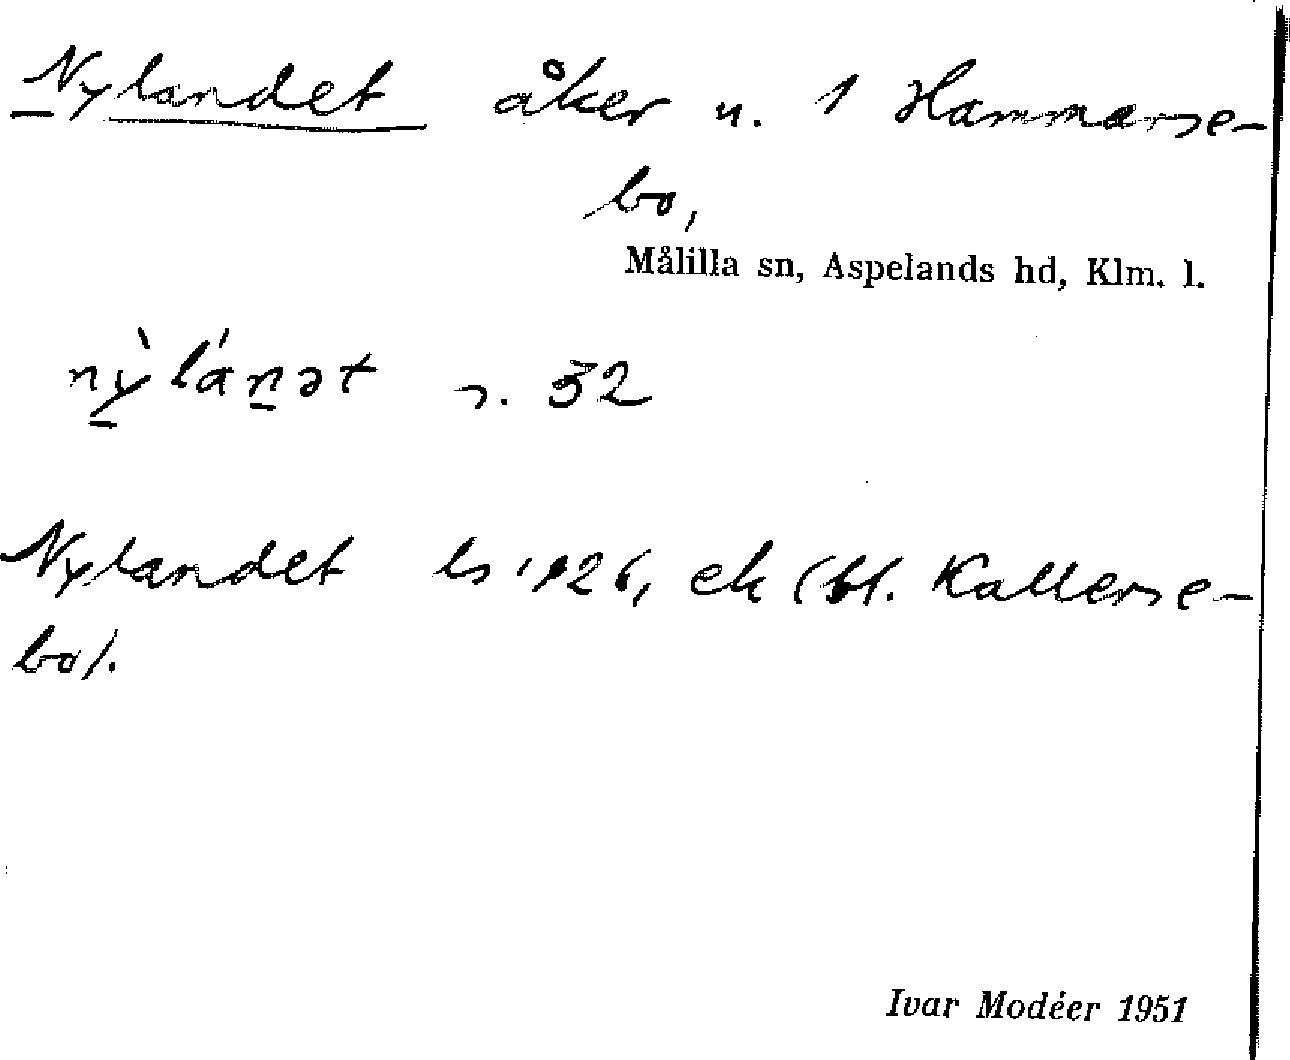 Nylandet åker n. 1 Hammarse-
bo,
Målilla sn, Aspelands hd, Klm. l.
nỳlánət s. 32
Nylandet ls 1926, ek (bl. Kallerse-
bo).
Ivar Modéer 1951